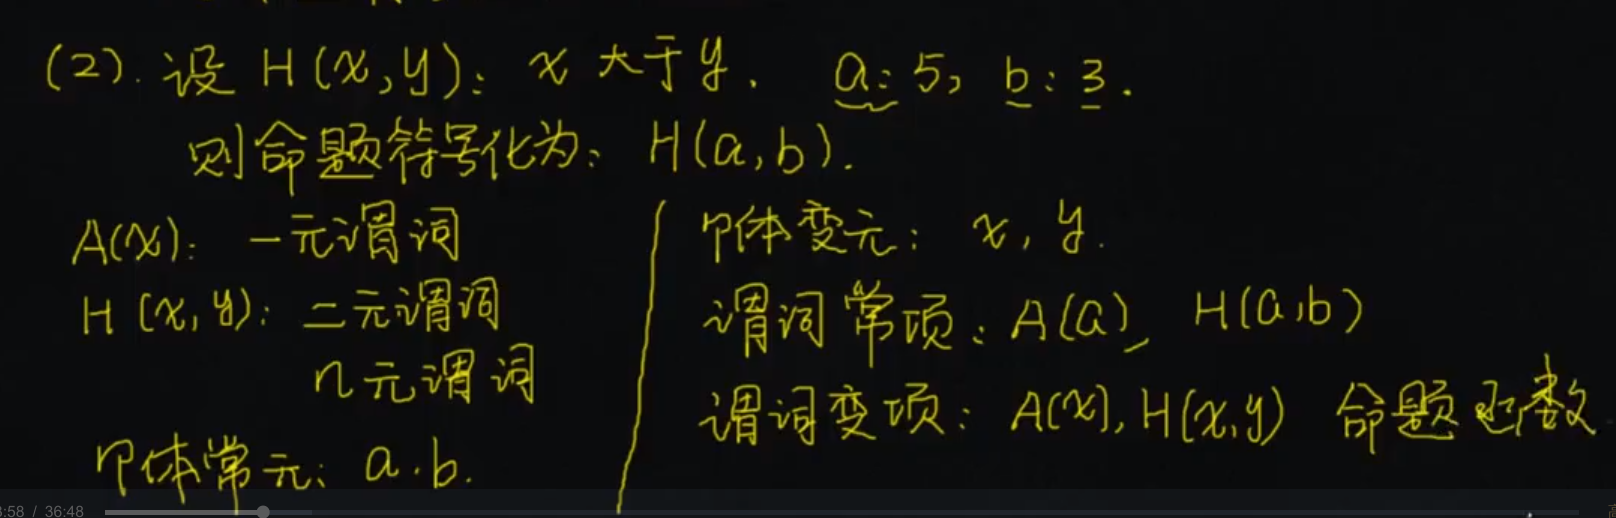 (2). 设 H(x,y): x 大于 y. a: 5, b: 3.
则命题符号化为: H(a,b).
A(x): 一元谓词
H(x,y): 二元谓词
n元谓词
个体常元: a.b.
个体变元: x, y.
谓词常项: A(a), H(a,b)
谓词变项: A(x), H(x,y) 命题函数
:58 / 36:48